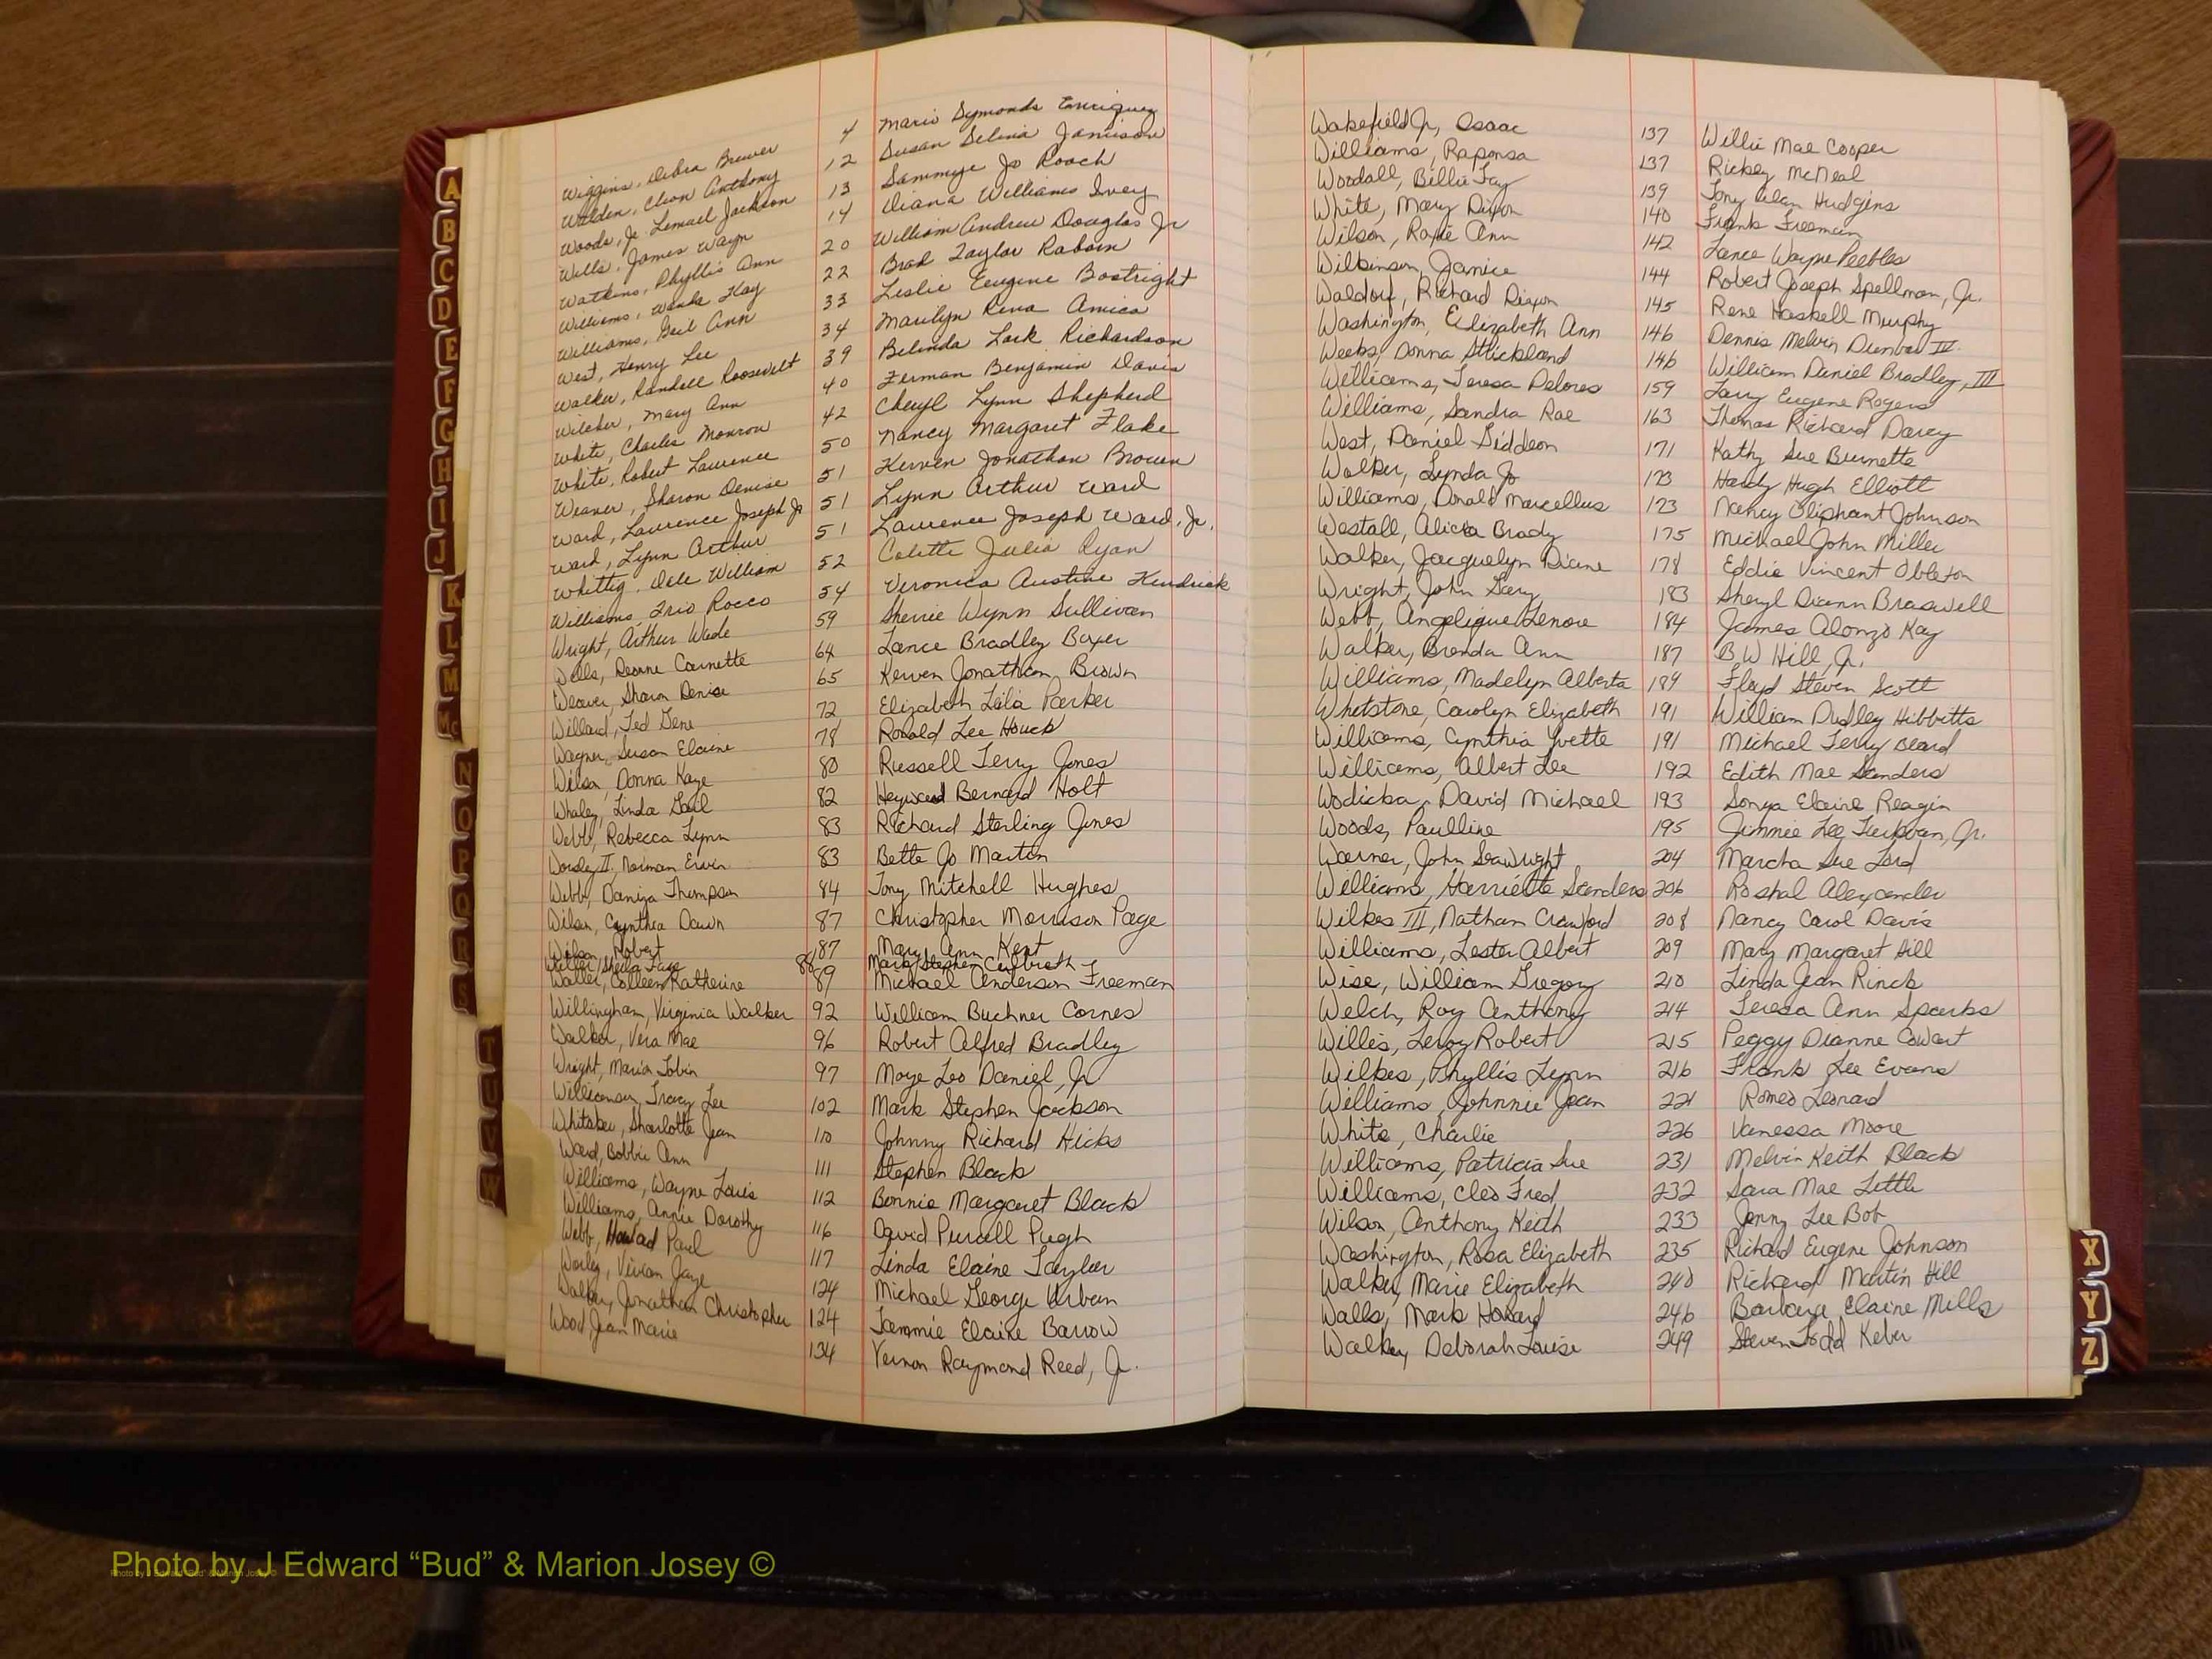 Wiggins, Debra Brewer 4 Mario Symonds Enriquez
Walden, Cleon Anthony 12 Susan Selina Jamison
Woods, Jr. Lemuel Jackson 13 Sammye Jo Roach
Wills, James Wayn 14 Diana Williams Ivey
Watkins, Phyllis Ann 20 William Andrew Douglas Jr
Williams, Wanda Kay 22 Brad Taylor Raborn
Williams, Gail Ann 33 Leslie Eugene Boatright
West, Henry Lee 34 Marilyn Rena Amica
Walker, Randell Roosevelt 39 Belinda Lark Richardson
Wilcher, Mary Ann 40 Ferman Benjamin Davis
White, Charles Monrow 42 Cheryl Lynn Shepherd
White, Robert Lawrence 50 Nancy Margaret Flake
Weaver, Sharon Denise 51 Kerven Jonathan Brown
Ward, Laurence Joseph Jr 51 Lynn Arthur Ward
Ward, Lynn Arthur 51 Laurence Joseph Ward, Jr.
Whittig, Dale William 52 Colette Julia Ryan
Williams, Trio Rocco 54 Veronica Austine Kendrick
Wright, Arthur Wade 59 Sherrie Wynn Sullivan
Wells, Deanne Carnette 64 Lance Bradley Boyer
Weaver, Sharon Denise 65 Kerven Jonathan Brown
Willard, Ted Gene 72 Elizabeth Lila Parker
Wagner, Susan Elaine 78 Ronald Lee Houck
Wilson, Donna Kaye 80 Russell Terry Jones
Whaley, Linda Gail 82 Heyward Bernard Holt
Webb, Rebecca Lynn 83 Richard Sterling Jones
Worsley II, Norman Ervin 83 Bette Jo Martin
Webb, Daniza Thompson 84 Tony Mitchell Hughes
Wilson, Cynthia Dawn 87 Christopher Morrison Page
Wilson, Robert 87 Mary Ann Kent
Waller, Sheila Faye 88 Mark Stephen Culbreth
Waller, Colleen Katherine 89 Michael Anderson Freeman
Willingham, Virginia Walker 92 William Buchner Cornes
Walker, Vera Mae 96 Robert Alfred Bradley
Wright, Marion Tobin 97 Moye Leo Daniel, Jr
Williamson, Tracy Lee 102 Mark Stephen Jackson
Whitaker, Sharlotte Jean 110 Johnny Richard Hicks
Ward, Bobbie Ann 111 Stephen Black
Williams, Wayne Louis 112 Bonnie Margaret Black
Williams, Annie Dorothy 116 David Purcell Pugh
Webb, Howard Paul 117 Linda Elaine Taylor
Worley, Vivian Jaye 124 Michael George Urban
Walker, Jonathan Christopher 124 Tammie Elaine Barrow
Wood, Jean Marie 134 Vernon Raymond Reed, Jr.
Wakefield Jr, Isaac 137 Willie Mae Cooper
Williams, Raponsa 137 Rickey McNeal
Woodall, Billie Fay 139 Tony Alan Hudgins
White, Mary Dixon 140 Frank Freeman
Wilson, Roxie Ann 142 Lance Wayne Peebles
Wilkinson, Janice 144 Robert Joseph Spellman, Jr.
Waldorf, Richard Dixon 145 Rene Haskell Murphy
Washington, Elizabeth Ann 146 Dennis Melvin Dunbar IV.
Weeks, Donna Strickland 146 William Daniel Bradley, III
Williams, Teresa Delores 159 Larry Eugene Rogers
Williams, Sandra Rae 163 Thomas Richard Darcy
West, Daniel Giddeon 171 Kathy Sue Burnette
Walker, Lynda Jo 173 Hardy Hugh Elliott
Williams, Donald Marcellus 173 Nancy Oliphant Johnson
Westall, Alicia Brady 175 Michael John Miller
Walker, Jacquelyn Diane 178 Eddie Vincent Obleton
Wright, John Gary 183 Sheryl Diann Braswell
Webb, Angelique Lenore 184 James Alonzo Kay
Walker, Brenda Ann 187 B W Hill, Jr.
Williams, Madelyn Alberta 189 Floyd Steven Scott
Whetstone, Carolyn Elizabeth 191 William Dudley Hibbitts
Williams, Cynthia Yvette 191 Michael Terry Beard
Williams, Albert Lee 192 Edith Mae Sanders
Wodicka, David Michael 193 Sonya Elaine Reagin
Woods, Paulline 195 Jimmie Lee Jr.
Warner, John Seawright 204 Marcha Sue Lord
Williams, Harriette Sanders 206 Roshal Alexander
Wilkes III, Nathan Crawford 208 Nancy Carol Davis
Williams, Lester Albert 209 Mary Margaret Hill
Wise, William Gregory 210 Linda Jean Rinck
Welch, Roy Anthony 214 Teresa Ann Sparks
Willis, Leroy Robert 215 Peggy Dianne Cowart
Wilkes, Phyllis Lynn 216 Frank Lee Evans
Williams, Johnnie Jean 221 Romeo Leonard
White, Charlie 226 Vanessa Moore
Williams, Patricia Sue 231 Melvin Keith Black
Williams, Cleo Fred 232 Sara Mae Little
Wilson, Anthony Keith 233 Jenny Lee Bob
Washington, Rosa Elizabeth 235 Richard Eugene Johnson
Walker, Marie Elizabeth 240 Richard Martin Hill
Walls, Mark Howard 246 Barbara Elaine Mills
Walker, Deborah Louise 249 Steven Todd Keber
A
B
C
D
E
F
G
H
I
J
K
L
M
Mc
N
O
P
Q
R
S
T
U
V
W
X
Y
Z
Photo by J Edward “Bud” & Marion Josey ©